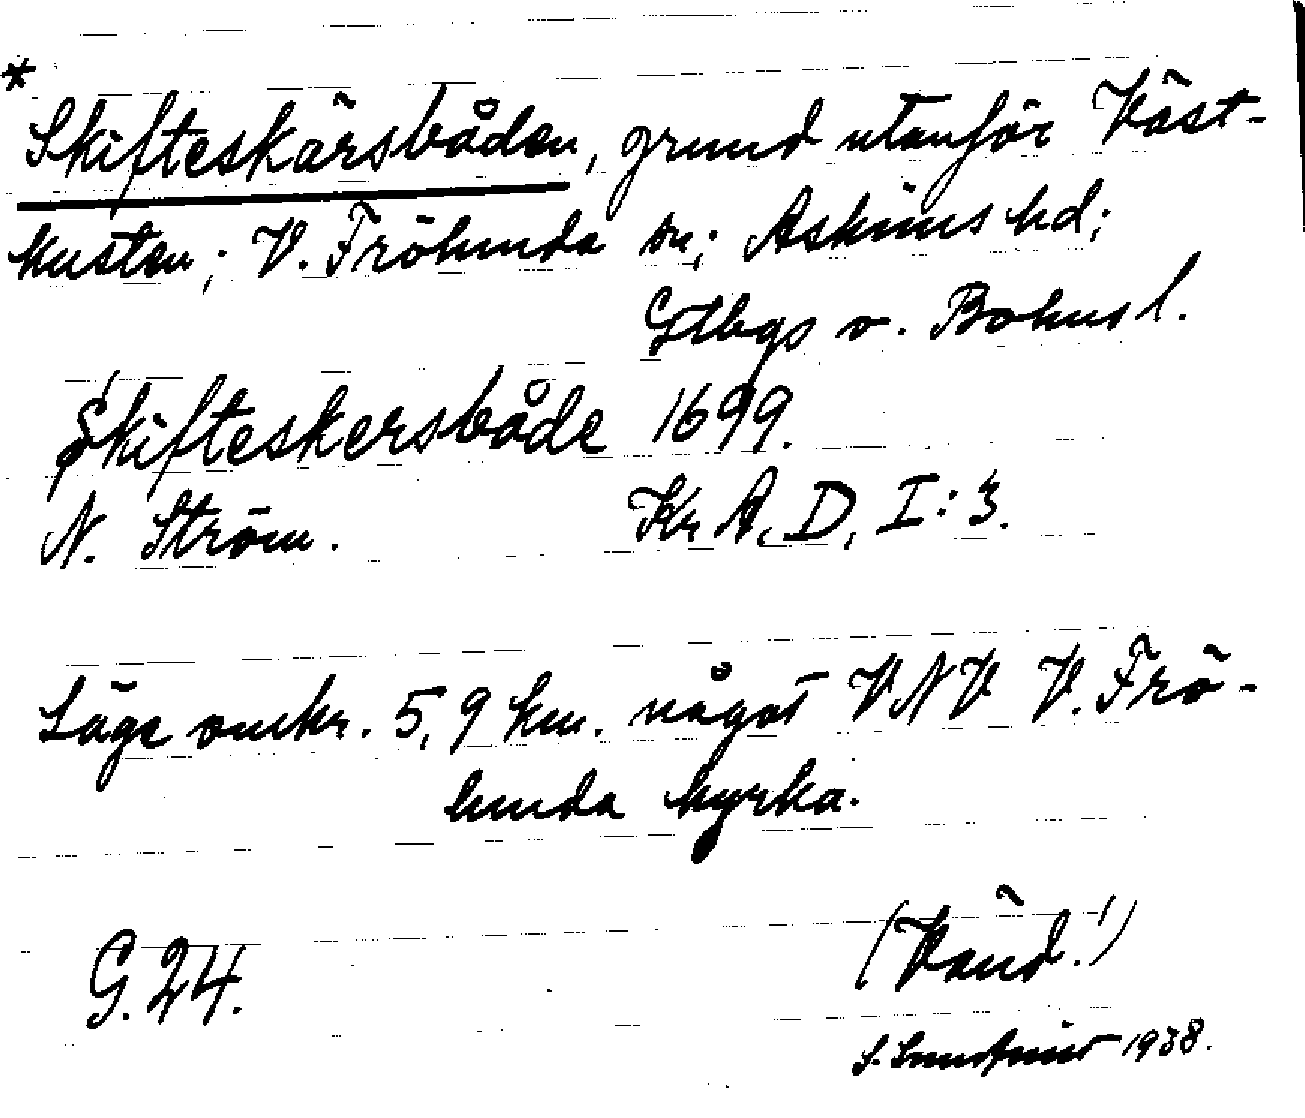 * Skifteskärsbåden, grund utanför Väst-
kusten; V. Frölunda sn; Askims hd;
Gtbgs o. Bohusl.
Skifteskersbåde 1699.
N. Ström. Kr. A. D, I: 3.
Läge omkr. 5,9 km. något VNV V. Frö-
lunda kyrka.
G. 24. (Vänd!)
S. 1938.